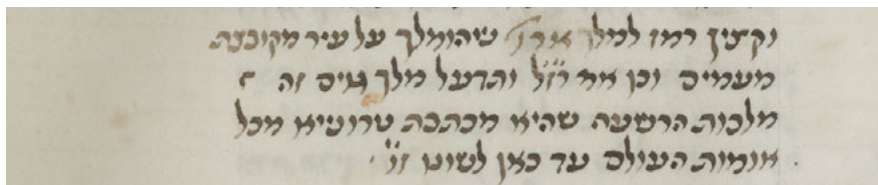 וקצין רמז למלך שהומלך על עיר מקובצת
מעמים וכן אמ' רז"ל ותדעל מלך גוים זה
מלכות הרשעה שהיא מכתבת טרוניא מכל
אומות העולם עד כאן לשונו ז"ל